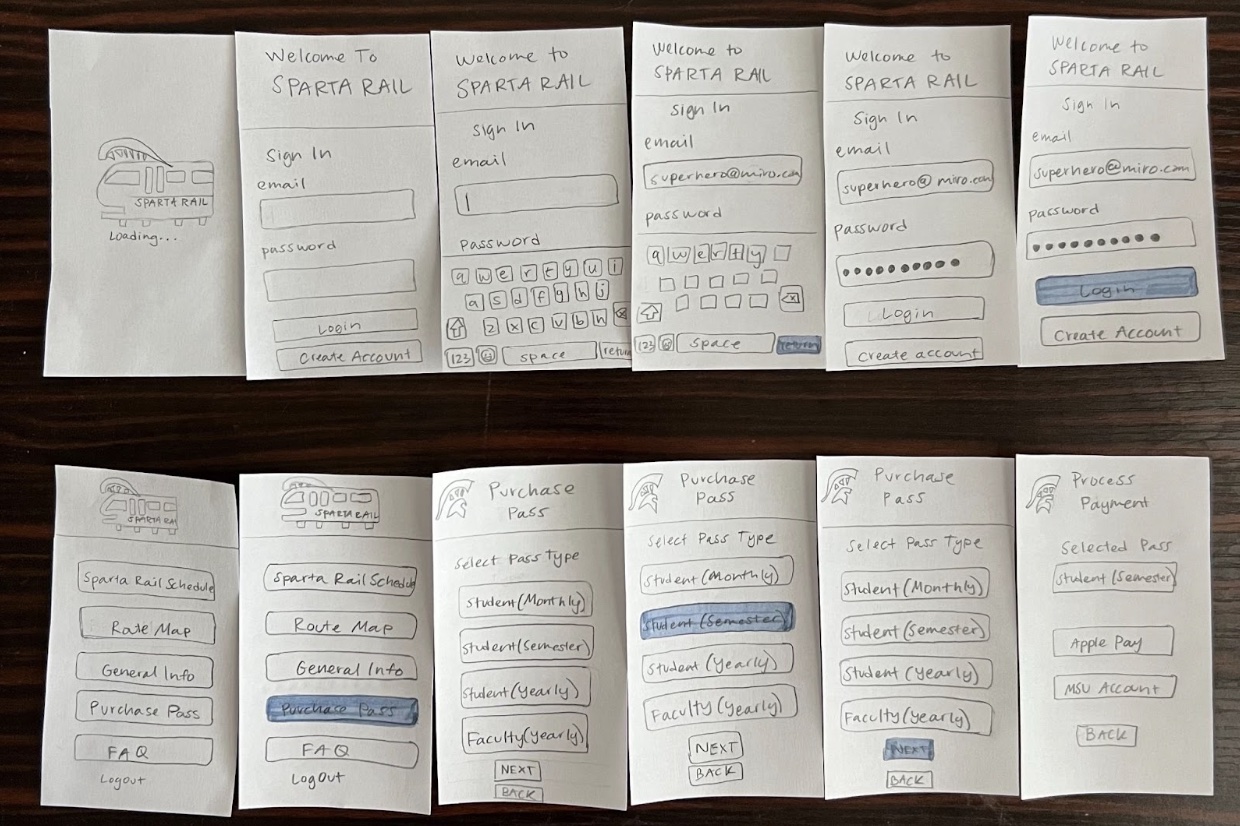 SPARTA RAIL
Loading...
Welcome To
SPARTA RAIL
Sign In
email
password
Login
Create Account
Welcome to
SPARTA RAIL
Sign In
email
Password
q w e r t y u i
a s d f g h j
z x c v b n
123 space return
Welcome to
SPARTA RAIL
Sign In
email
superhero@miro.com
password
q w e r t y
123 space return
Welcome to
SPARTA RAIL
Sign In
email
superhero@miro.com
password
Login
Create account
Welcome to
SPARTA RAIL
Sign In
email
superhero@miro.com
password
Login
Create Account
SPARTA RAI
Sparta Rail Schedule
Route Map
General Info
Purchase Pass
FAQ
Logout
SPARTA RAIL
Sparta Rail Schedule
Route Map
General Info
Purchase Pass
FAQ
LogOut
Purchase
Pass
Select Pass Type
Student (Monthly)
Student (Semester)
Student (Yearly)
Faculty (Yearly)
NEXT
BACK
Purchase
Pass
Select Pass Type
Student (Monthly)
Student (Semester)
Student (Yearly)
Faculty (Yearly)
NEXT
BACK
Purchase
Pass
Select Pass Type
Student (Monthly)
Student (Semester)
Student (Yearly)
Faculty (Yearly)
NEXT
BACK
Process
Payment
Selected Pass
Student (Semester)
Apple Pay
MSU Account
BACK